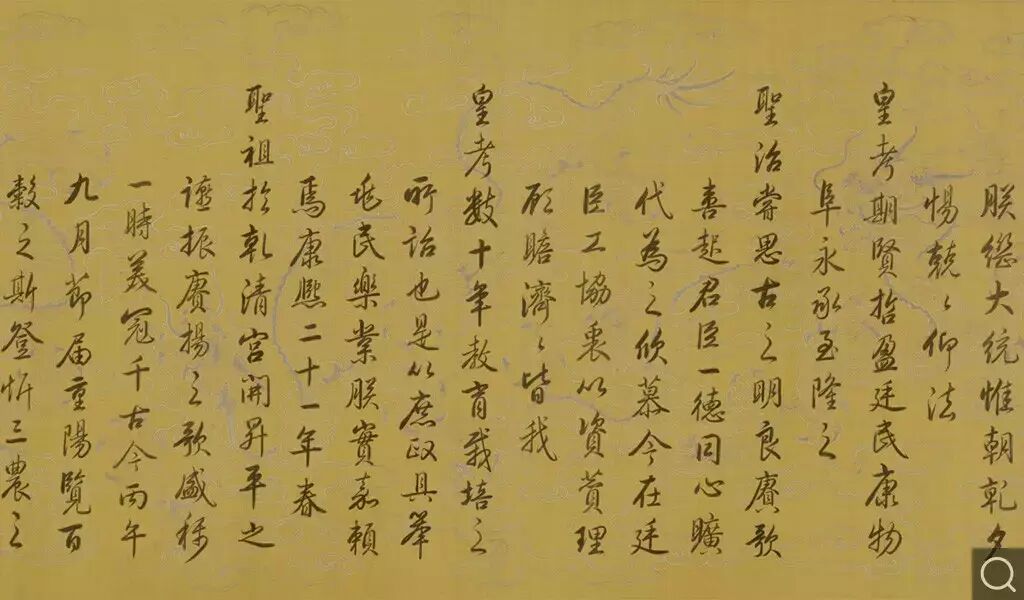 朕繼大統惟朝乾夕
惕兢〻仰法
皇考期賢哲盈廷民康物
阜永承至隆之
聖治嘗思古之明良賡歌
喜起君臣一德同心曠
代為之欣慕今在廷
臣工協衷以資贊理
顧瞻濟〻皆我
皇考數十年教育栽培之
所詒也是以庶政具舉
兆民樂業朕實嘉賴
焉康熙二十一年春
聖祖於乾清宮開昇平之
讌振賡揚之歌盛稱
一時美冠千古今丙午
九月節届重陽覽百
穀之斯登忻三農之